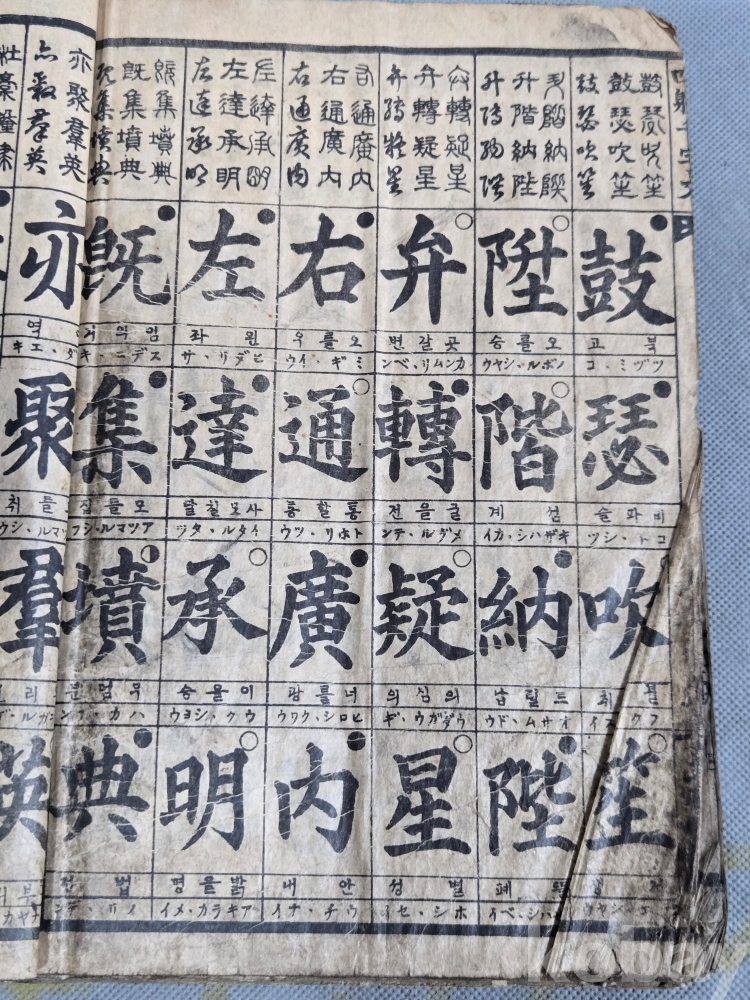 四體千字文
鼓瑟吹笙
鼓瑟吹笙
鼓瑟吹笙
鼓
북고
ツヅミ・コ
瑟
비파슬
コト・シツ
吹
불취
フク・スイ
笙
升階納陛
升階納陛
升階納陛
陞
오를승
ノボル・シヤウ
階
섬계
キザハシ・カイ
納
드릴납
オサム・ドウ
陛
폐
弁轉疑星
弁轉疑星
弁轉疑星
弁
곳갈변
カンムリ・ベン
轉
굴을전
メグル・テン
疑
의심의
ウダガウ・ギ
星
별성
ホシ・セイ
右通廣內
右通廣內
右通廣內
右
오를우
ミギ・イウ
通
통할통
トホリ・ツウ
廣
너를광
ヒロシ・クワウ
內
안내
ウチ・ナイ
左達承明
左達承明
左達承明
左
왼좌
ヒダリ・サ
達
사모칠달
イタル・タツ
承
이을승
ウク・シヨウ
明
밝을명
アキラカ・メイ
旣集墳典
旣集墳典
旣集墳典
旣
임의긔
スデニ・キ
集
모들집
アツマル・シフ
墳
무덤분
ハカ・フン
典
법전
ノリ・テン
亦聚羣英
亦聚羣英
亦
역
聚
취
羣
英
杜稾鍾隸